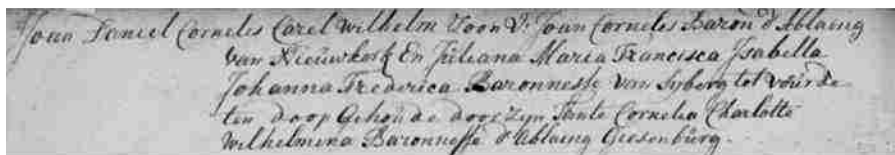 Joan Daniel Cornelis Carel Wilhelm Zoon V: Joan Cornelis Baron d'Ablaing
van Nieuwkerk En Juliana Maria Francisca Isabella
Johanna Frederica Baronnesse van Syberg tot Vöürde
ten doop Gehoude door zyn Tante Cornelia Charlotte
Wilhelmina Baronnesse d'Ablaing Giesenbürg.